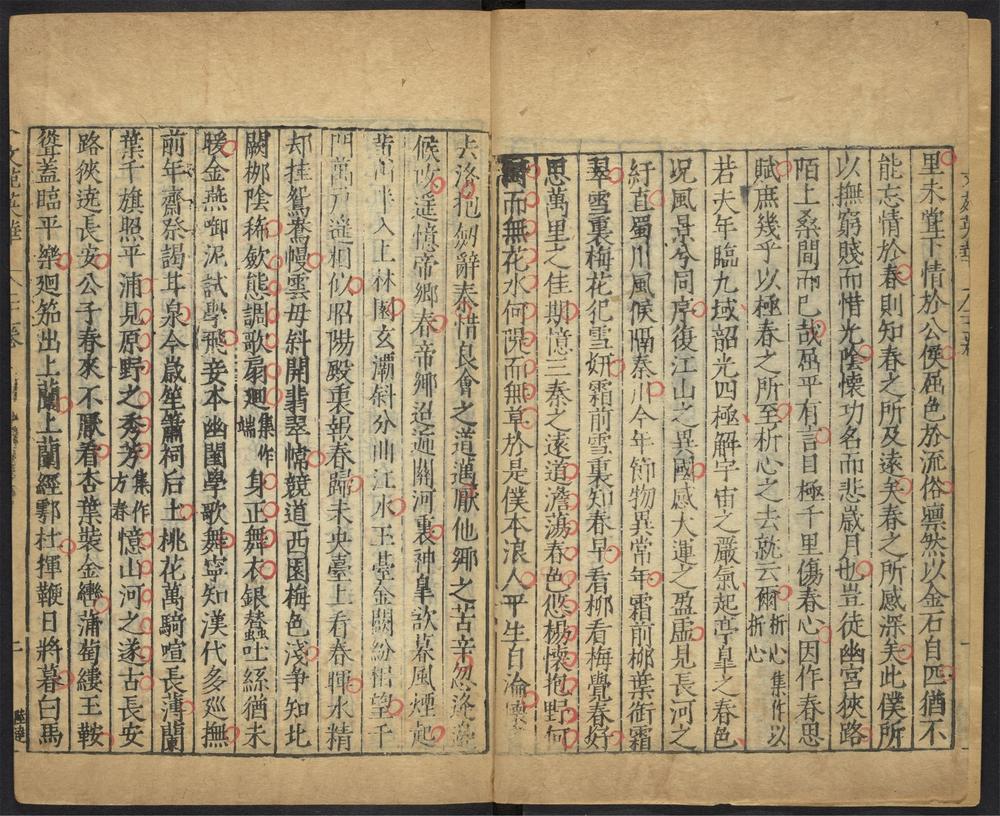 里未嘗下情於公侯邑色於流俗凛然以金石自匹猶不
能忘情於春則知春之所及遠矣春之所感深矣此僕所
以撫窮賤而惜光陰懷功名而悲歲月也豈徒幽宮狹路
陌上桑間而已哉屈平有言目極千里傷春心因作春思
賦庶幾乎以極春之所至析心之去就云爾析心集作以折心
若夫年臨九域韶光四極解宇宙之嚴氣起亭皐之春色
况風景兮同序復江山之異國感大運之盈虛見長河之
紆直蜀川風候隔秦川今年節物異常年霜前柳葉銜霜
翠雪裏梅花犯雪妍霜前雪裏知春早看柳看梅覺春好
思萬里之佳期憶三秦之遠道澹蕩春色悠揚懷抱野何
樹而無花水何堤而無草於是僕本浪人平生自淪懷
去洛抱劒辭秦惜良會之道邁厭他鄉之苦辛忽
候改遥憶帝鄉春帝鄉迢遞關河裏神皐欲暮風煙起
黃山半入上林園玄灞斜分曲江水玉臺金闕紛相望千
門萬戸遥相似昭陽殿裏報春歸未央臺上看春暉水精
却挂鴛鴦幔雲母斜開翡翠帷競道西園梅色淺争知北
闕栁陰稀歛態調歌扇廻集作端身正舞衣銀蠶吐絲猶未
暖金燕啣泥試學飛妾本幽閨學歌舞寧知漢代多廵撫
前年齋祭謁甘泉今歲笙簫祠后土桃花萬騎喧長薄蘭
葉千旗照平浦見原野之秀芳集作方春憶山河之遂古長安
路狹遶長安公子春來不厭看杏葉裝金轡蒲萄縷玉鞍
聳蓋臨平樂廻笳出上蘭上蘭經鄠杜揮鞭日將暮白馬